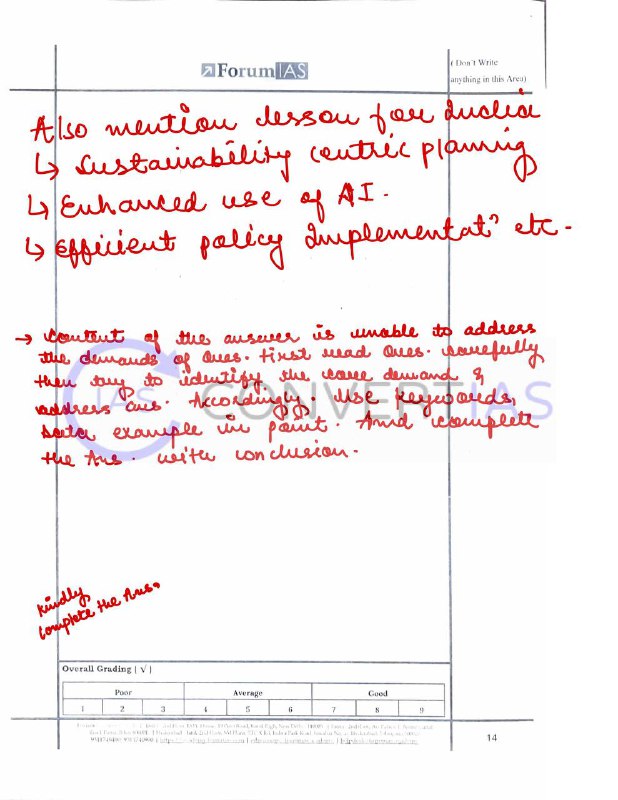 ForumIAS
(Don't Write
anything in this Area)
Also mention lesson for India
↳ Sustainability centric planning
↳ Enhanced use of AI.
↳ Efficient policy Implementatn etc.
→ Content of the answer is unable to address
the demands of Ques. First read Ques. carefully
then try to identify the core demand &
address ans. Accordingly. Use keywords,
data example in point. And complete
the Ans. with conclusion.
CONVERTIAS
Kindly
complete the Ans.
Overall Grading [ √ ]
Poor Average Good
1 2 3 4 5 6 7 8 9
14